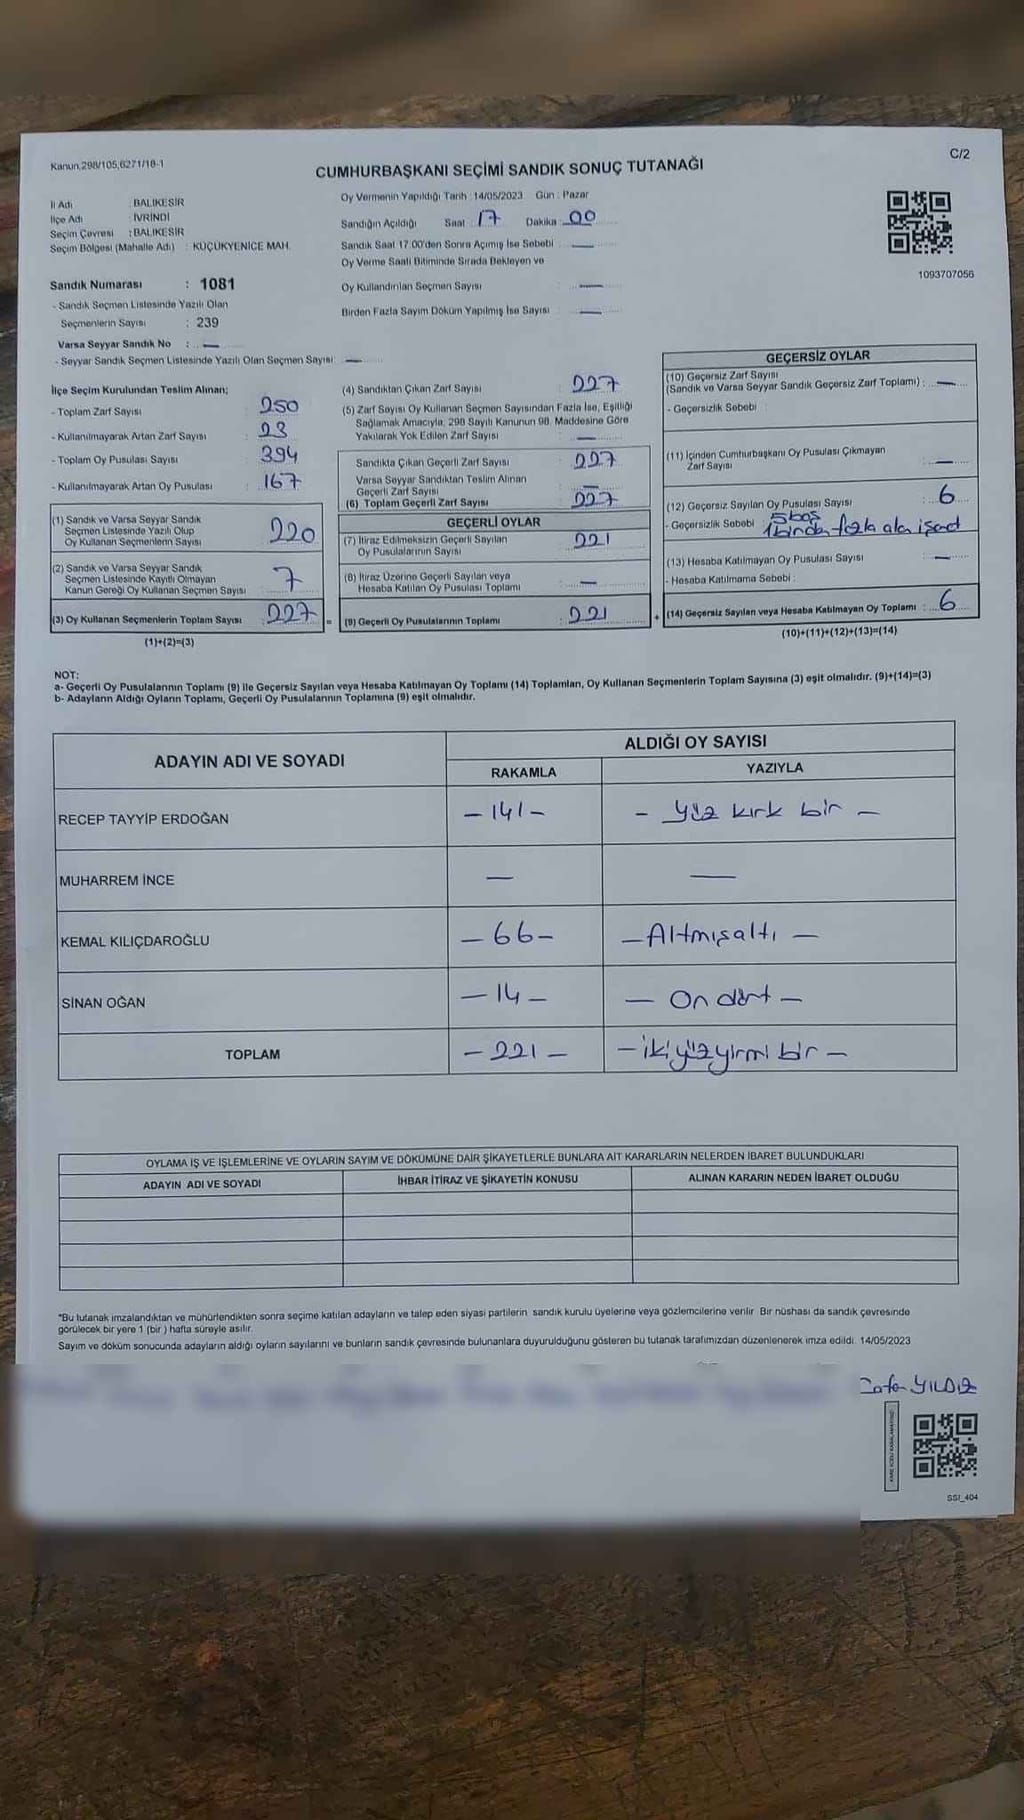 Kanun.298/105,6271/18-1
C/2
CUMHURBAŞKANI SEÇİMİ SANDIK SONUÇ TUTANAĞI
İl Adı : BALIKESİR
İlçe Adı : İVRİNDİ
Seçim Çevresi : BALIKESİR
Seçim Bölgesi (Mahalle Adı) : KÜÇÜKYENİCE MAH.
Oy Vermenin Yapıldığı Tarih : 14/05/2023 Gün : Pazar
Sandığın Açıldığı Saat : 17 Dakika : 00
Sandık Saat 17.00'den Sonra Açılmış İse Sebebi —
Oy Verme Saati Bitiminde Sırada Bekleyen ve
Oy Kullandırılan Seçmen Sayısı : —
Birden Fazla Sayım Döküm Yapılmış İse Sayısı : —
1093707056
Sandık Numarası : 1081
- Sandık Seçmen Listesinde Yazılı Olan
Seçmenlerin Sayısı : 239
Varsa Seyyar Sandık No : —
- Seyyar Sandık Seçmen Listesinde Yazılı Olan Seçmen Sayısı : —
İlçe Seçim Kurulundan Teslim Alınan;
- Toplam Zarf Sayısı : 250
- Kullanılmayarak Artan Zarf Sayısı : 23
- Toplam Oy Pusulası Sayısı : 394
- Kullanılmayarak Artan Oy Pusulası : 167
(1) Sandık ve Varsa Seyyar Sandık
Seçmen Listesinde Yazılı Olup
Oy Kullanan Seçmenlerin Sayısı : 220
(2) Sandık ve Varsa Seyyar Sandık
Seçmen Listesinde Kayıtlı Olmayan
Kanun Gereği Oy Kullanan Seçmen Sayısı : 7
(3) Oy Kullanan Seçmenlerin Toplam Sayısı : 227 =
(1)+(2)=(3)
(4) Sandıktan Çıkan Zarf Sayısı : 227
(5) Zarf Sayısı Oy Kullanan Seçmen Sayısından Fazla İse, Eşitliği
Sağlamak Amacıyla, 298 Sayılı Kanunun 98. Maddesine Göre
Yakılarak Yok Edilen Zarf Sayısı : —
Sandıkta Çıkan Geçerli Zarf Sayısı : 227
Varsa Seyyar Sandıktan Teslim Alınan
Geçerli Zarf Sayısı : —
(6) Toplam Geçerli Zarf Sayısı : 227
GEÇERLİ OYLAR
(7) İtiraz Edilmeksizin Geçerli Sayılan
Oy Pusulalarının Sayısı : 221
(8) İtiraz Üzerine Geçerli Sayılan veya
Hesaba Katılan Oy Pusulası Toplamı : —
(9) Geçerli Oy Pusulalarının Toplamı : 221 +
GEÇERSİZ OYLAR
(10) Geçersiz Zarf Sayısı
(Sandık ve Varsa Seyyar Sandık Geçersiz Zarf Toplamı) : —
- Geçersizlik Sebebi :
(11) İçinden Cumhurbaşkanı Oy Pusulası Çıkmayan
Zarf Sayısı : —
(12) Geçersiz Sayılan Oy Pusulası Sayısı : 6
- Geçersizlik Sebebi : 5 boş
1 birden fazla alan işaret
(13) Hesaba Katılmayan Oy Pusulası Sayısı : —
- Hesaba Katılmama Sebebi :
(14) Geçersiz Sayılan veya Hesaba Katılmayan Oy Toplamı : 6
(10)+(11)+(12)+(13)=(14)
NOT:
a- Geçerli Oy Pusulalarının Toplamı (9) ile Geçersiz Sayılan veya Hesaba Katılmayan Oy Toplamı (14) Toplamları, Oy Kullanan Seçmenlerin Toplam Sayısına (3) eşit olmalıdır. (9)+(14)=(3)
b- Adayların Aldığı Oyların Toplamı, Geçerli Oy Pusulalarının Toplamına (9) eşit olmalıdır.
ADAYIN ADI VE SOYADI
ALDIĞI OY SAYISI
RAKAMLA YAZIYLA
RECEP TAYYİP ERDOĞAN – 141 – – Yüz kırk bir –
MUHARREM İNCE — —
KEMAL KILIÇDAROĞLU – 66 – – Altmışaltı –
SİNAN OĞAN – 14 – – On dört –
TOPLAM – 221 – – iki yüz yirmi bir –
OYLAMA İŞ VE İŞLEMLERİNE VE OYLARIN SAYIM VE DÖKÜMÜNE DAİR ŞİKAYETLERLE BUNLARA AİT KARARLARIN NELERDEN İBARET BULUNDUKLARI
ADAYIN ADI VE SOYADI İHBAR İTİRAZ VE ŞİKAYETİN KONUSU ALINAN KARARIN NEDEN İBARET OLDUĞU
*Bu tutanak imzalandıktan ve mühürlendikten sonra seçime katılan adayların ve talep eden siyasi partilerin sandık kurulu üyelerine veya gözlemcilerine verilir. Bir nüshası da sandık çevresinde
görülecek bir yere 1 (bir ) hafta süreyle asılır.
Sayım ve döküm sonucunda adayların aldığı oyların sayılarını ve bunların sandık çevresinde bulunanlara duyurulduğunu gösteren bu tutanak tarafımızdan düzenlenerek imza edildi. 14/05/2023
YILDIZ
SSI_404